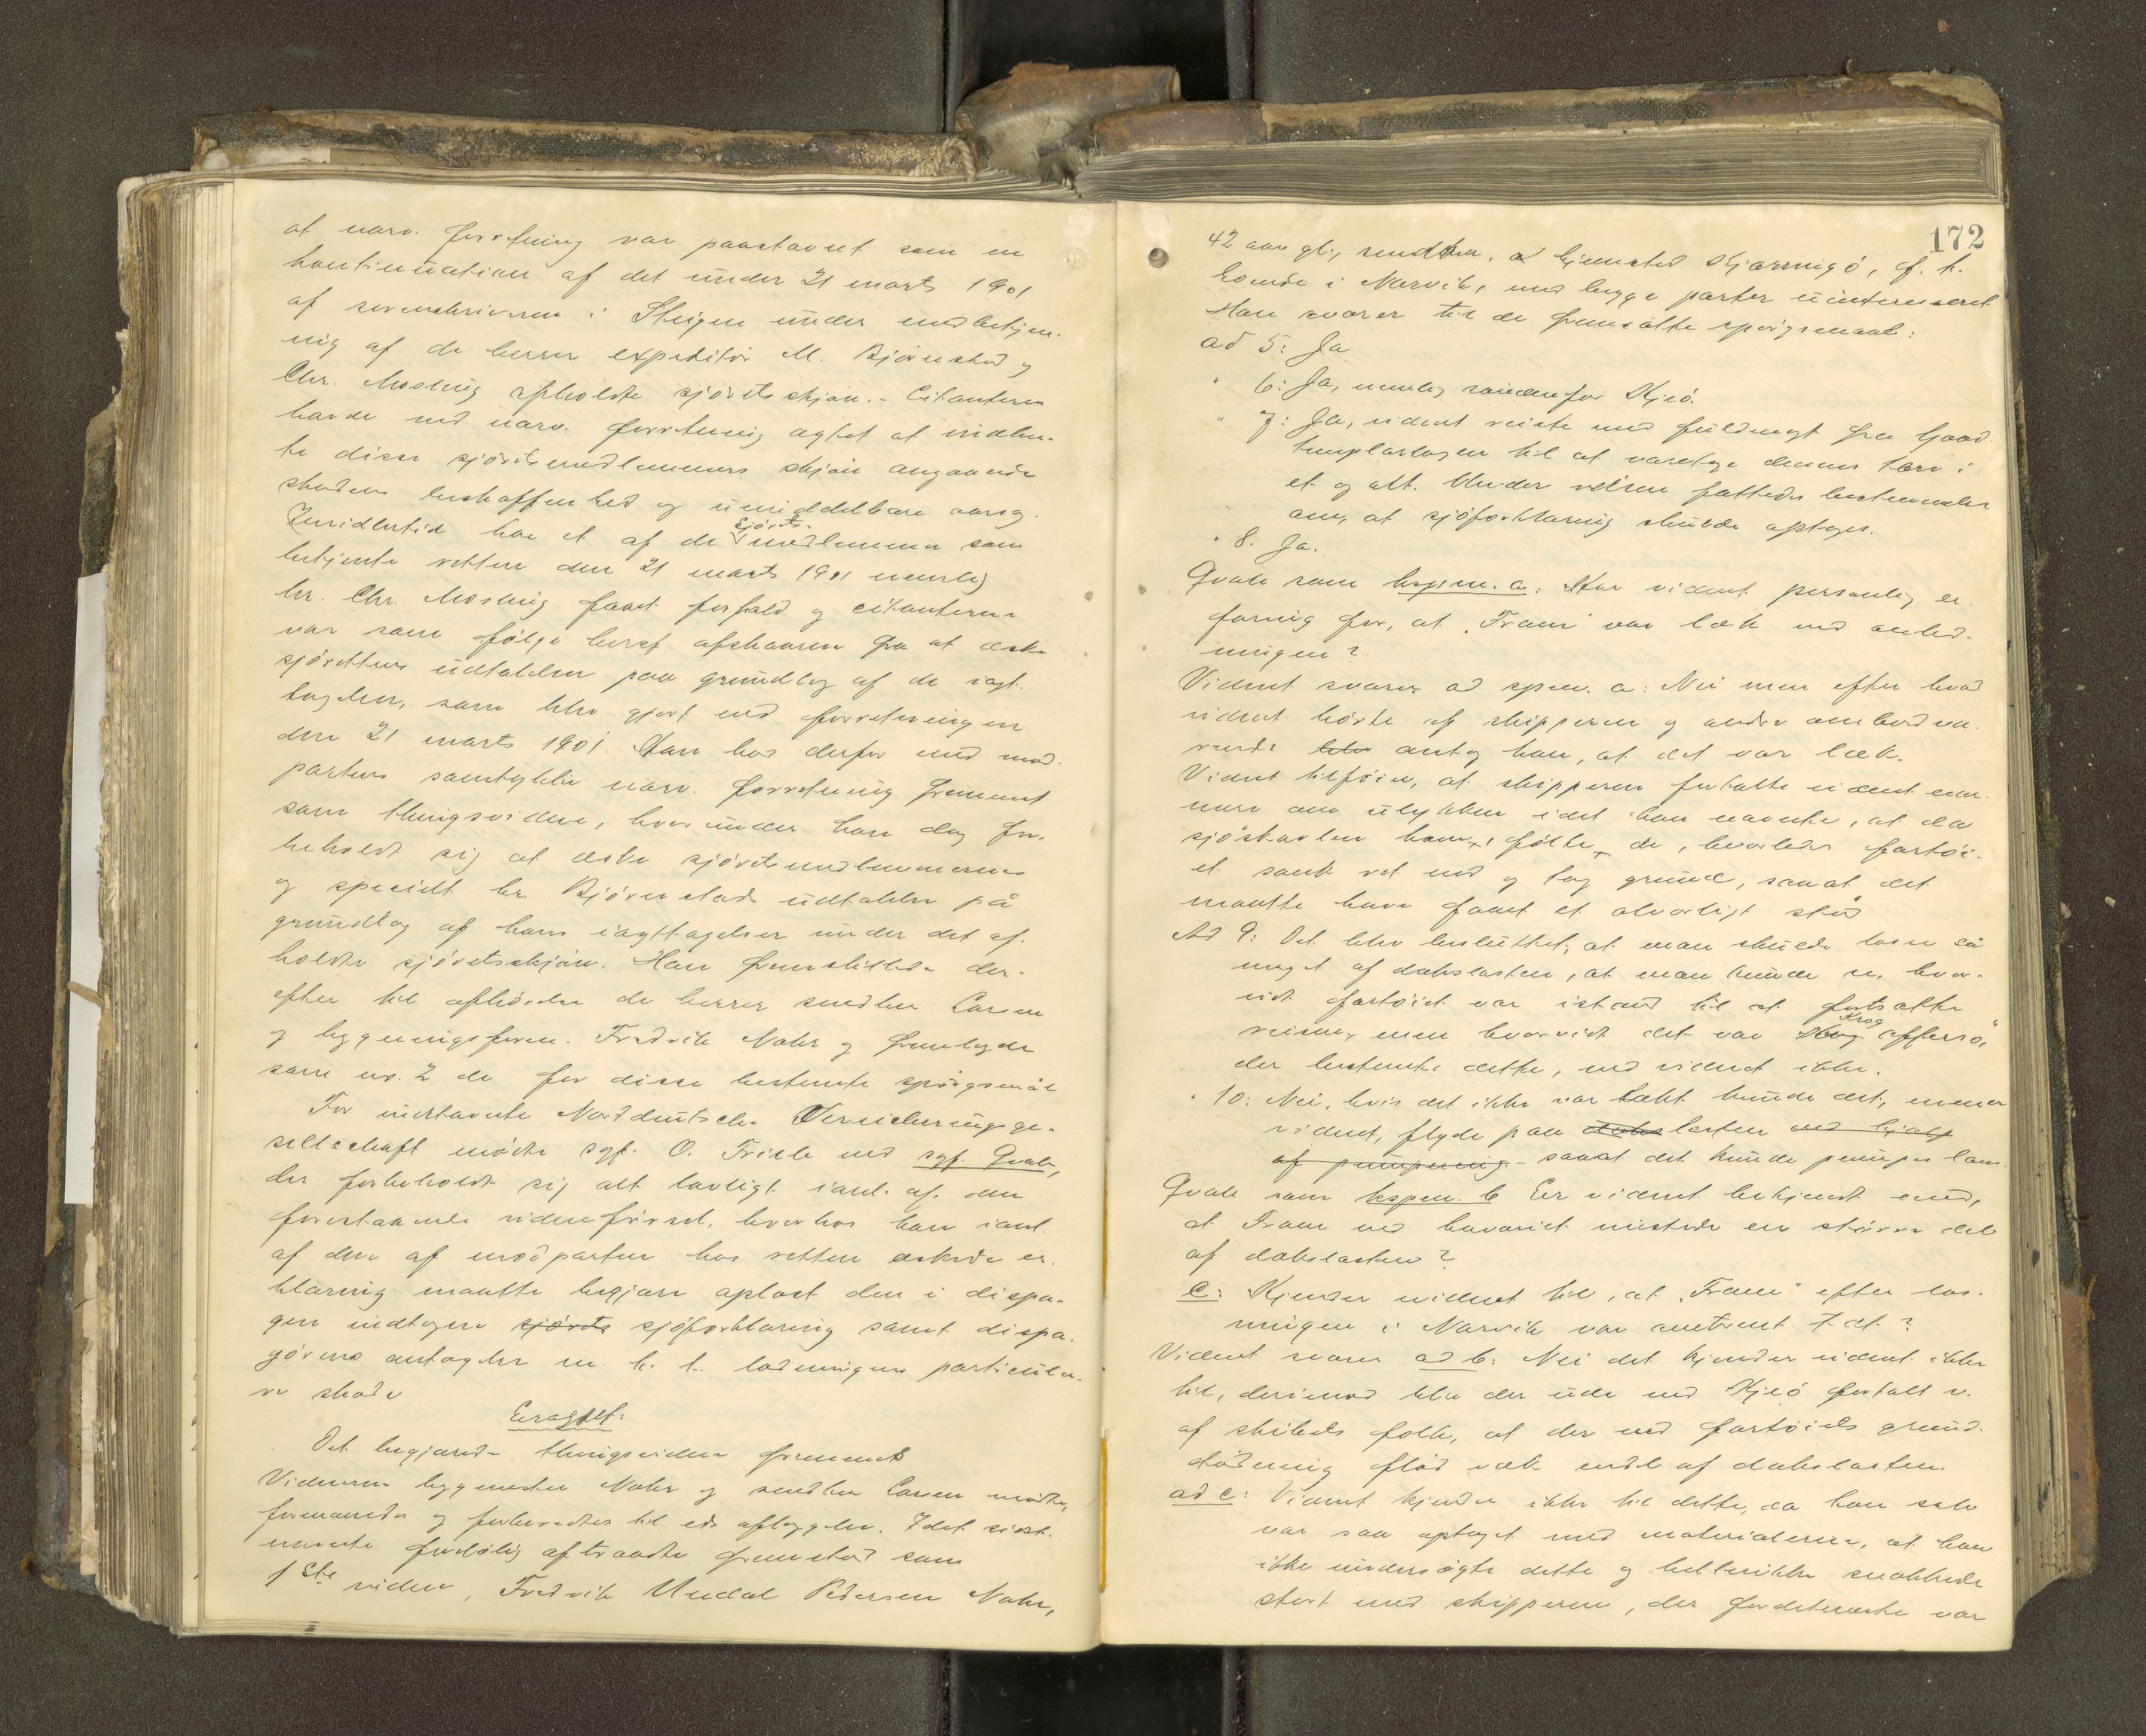 at nærv. forretning var paastævnt som en
kontinuation af det under 21 marts 1901
af sorenskriveren i Steigen under medbetjen-
ing af de herrer expeditør M. Bjørnstad og
Chr. Mosling afholdte sjøretsskjøn. - Citanterne
havde ved nærv. forretning agtet at indhen-
te disse sjøretsmedlemmers skjøn angaaende
skadens beskaffenhed og umiddelbare aarsag.
Imidlertid har et af de sjørets- medlemmer som
betjente retten den 21 marts 1901 nemlig
hr. Chr. Mosling faaet forfald og citanterne
var som følge heraf afskaaren fra at æske
sjørettens udtalelser paa grundlag af de iagt-
tagelser, som blev gjort ved forretningen
den 21 marts 1901. Han har derfor med mod-
partens samtykke nærv. forretning fremmet
som thingsvidne, hvorunder han dog for-
beholdt sig at æske sjøretsmedlemmernes
og specielt hr. Bjørnstads udtalelser på
grundlag af hans iagttagelser under det af-
holdte sjøretsskjøn. Han fremstillede der-
efter til afhørelse de herrer snedker Larsen
og bygningsforem. Fredrik Nohr og fremlagde
som no. 2 de for disse bestemte spørgsmål
For indstævnte Norddeutsche Versicherungsge-
sellschaft mødte sgf. O. Friele ved sgf. Qvale,
der forbeholdt sig alt lovligt i anl. af den
forestaaende vidneførsel, hvorhos han i anl.
af den af modparten hos retten æskede er-
klæring maatte begjære oplæst den i dispa-
gen indtagne sjørets sjøforklaring samt dispa-
gørens antagelse m. h. t. ladningens particulæ-
re skade
Eragtet:
Det begjærede thingsvidne fremmes
Vidnerne bygmester Nohr og snedker Larsen mødte,
formanedes og forberedtes til eds aflæggelse. Idet sidst-
nævnte foreløbig aftraadte fremstod som
1ste vidne, Fredrik Undal Pedersen Nohr,
172
42 aar gl., snedker, hjemsted Skjærnigø, f. t.
boende i Narvik, med begge parter uinteresseret
Han svarer til de fremsatte spørgsmaal:
ad 5: Ja
" 6: Ja, nemlig søndenfor Kjeø.
" 7: Ja, vidnet reiste med fuldmagt fra Good-
templarlogen til at varetage dennes tarv i
et og alt. Under reisen fattedes bestemmelse
om, at sjøforklaring skulde optages.
" 8. Ja.
Qvale som kspm. a: Har vidnet personlig er-
faring for, at "Fram" var læk ved anled-
ningen?
Vidnet svarer ad spm. a: Nei men efter hvad
vidnet hørte af skipperen og andre ombord væ-
rende blev antog han, at det var læk.
Vidnet tilføier, at skipperen fortalte vidnet nær-
mere om ulykken idet han nævnte, at da
sjøskavlen kom, følte de, hvorledes fartøi-
et sank ret ned og tog grund, saaat det
maatte have faaet et alvorligt stød
Ad 9: Det blev besluttet, at man skulde losse så
meget af dækslasten, at man kunde se, hvor-
vidt fartøiet var istand til at fortsatte
reisen, men hvorvidt det var Krog afferså,
der bestemte dette, ved vidnet ikke.
" 10: Nei, hvis det ikke var tækt kunde det, mener
vidnet, flyde paa dæks lasten ved hjælp
af pumpning - saaat det kunde pumpes læns.
Qvale som kspm. b Er vidnet bekjendt med,
at Fram ved havariet mistede en større del
af dækslasten?
c: Kjender vidnet til, at "Fram" efter los-
ningen i Narvik var omtrent tæt?
Vidnet svarer ad b: Nei det kjender vidnet ikke
til, derimod blev der ude ved Kjeø fortalt v.
af skibets folk, at der ved fartøiets grund-
stødning flød væk endel af dækslasten.
ad c: Vidnet kjender ikke til dette, da han selv
var saa optaget med materialerne, at han
ikke undersøgte dette og heller ikke snakkede
stort med skipperen, der fordetmeste var